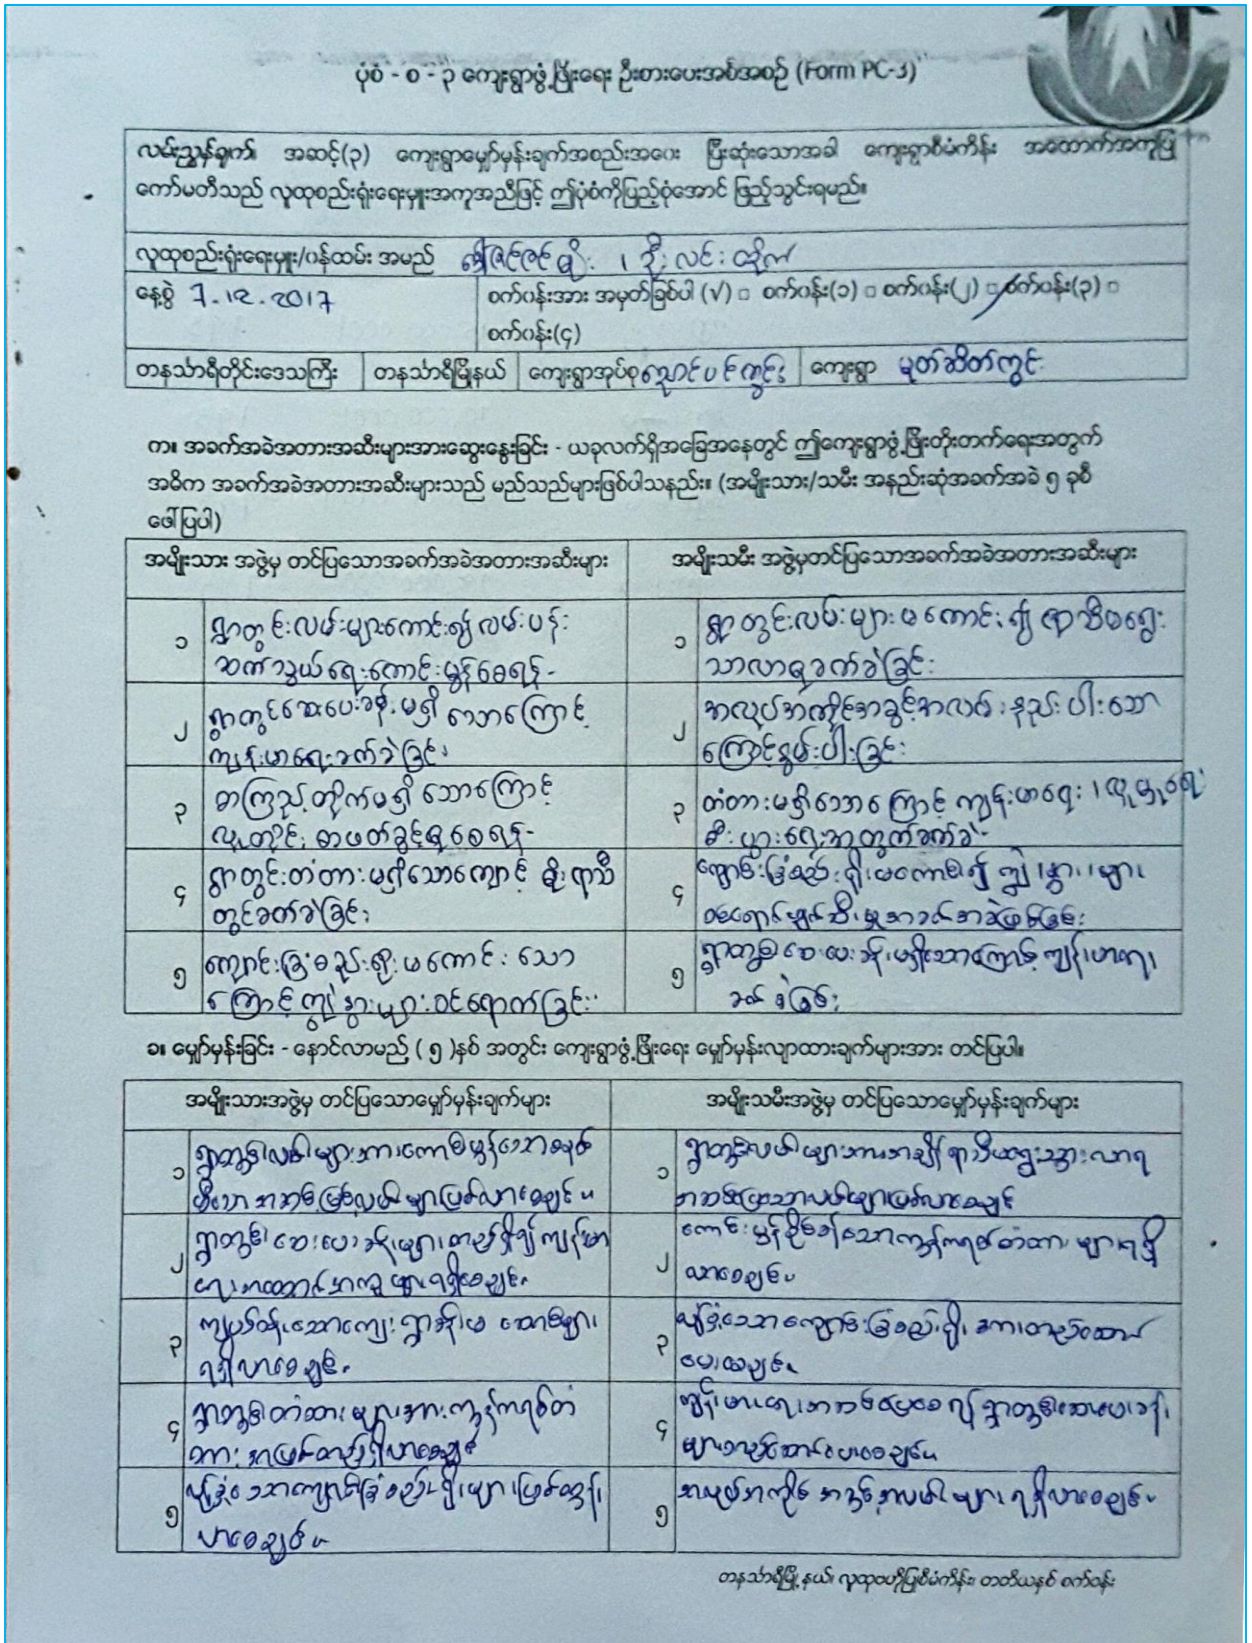 ပုံစံ - စ - ၃ ကျေးရွာဖွံ့ဖြိုးရေး ဦးစားပေးအစီအစဉ် (Form PC-3)
လမ်းညွှန်ချက်၊ အဆင့်(၃) ကျေးရွာမျှော်မှန်းချက်အစည်းအဝေး ပြီးဆုံးသောအခါ ကျေးရွာစီမံကိန်း အထောက်အကူပြု
ကော်မတီသည် လူထုစည်းရုံးရေးမှူးအကူအညီဖြင့် ဤပုံစံကိုပြည့်စုံအောင် ဖြည့်သွင်းရမည်။
လူထုစည်းရုံးရေးမှူး/ဝန်ထမ်း အမည်
နေ့စွဲ 7.12.2017 စက်ဝန်းအား အမှတ်ခြစ်ပါ (√) □ စက်ဝန်း(၁) □ စက်ဝန်း(၂) □ စက်ဝန်း(၃) □
စက်ဝန်း(၄)
တနင်္သာရီတိုင်းဒေသကြီး တနင်္သာရီမြို့နယ် ကျေးရွာအုပ်စု ညောင်ပင်ကွင်း ကျေးရွာ မုတ်ဆိတ်ကွင်း
က။ အခက်အခဲအတားအဆီးများအားဆွေးနွေးခြင်း - ယခုလက်ရှိအခြေအနေတွင် ဤကျေးရွာဖွံ့ဖြိုးတိုးတက်ရေးအတွက်
အဓိက အခက်အခဲအတားအဆီးများသည် မည်သည်များဖြစ်ပါသနည်း။ (အမျိုးသား/သမီး အနည်းဆုံးအခက်အခဲ ၅ ခုစီ
ဖေါ်ပြပါ)
အမျိုးသား အဖွဲ့မှ တင်ပြသောအခက်အခဲအတားအဆီးများ အမျိုးသမီး အဖွဲ့မှတင်ပြသောအခက်အခဲအတားအဆီးများ
၁ ရွာတွင်းလမ်းများကောင်း၍လမ်းပန်း
ဆက်သွယ်ရေးကောင်းမွန်စေရန်-
၁ ရွာတွင်းလမ်းများမကောင်း၍ ရာသီမရွေး
သာလာရခက်ခဲခြင်း
၂ ရွာတွင်ဆေးပေးခန်းမရှိသောကြောင့်
ကျန်းမာရေးခက်ခဲခြင်း
၂ အလုပ်အကိုင်အခွင့်အလမ်းနည်းပါးသော
ကြောင့်စွမ်းပါးခြင်း
၃ စာကြည့်တိုက်မရှိသောကြောင့်
လူတိုင်းစာဖတ်ခွင့်ရစေရန်-
၃ တံတားမရှိသောကြောင့် ကျန်းမာရေး၊ လူမှုရေး
စီးပွားရေးအတွက်ခက်ခဲ-
၄ ရွာတွင်းတံတားမရှိသောကျောင့် မိုးရာသီ
တွင်ခတ်ခဲခြင်း
၄ ကျောင်းခြံစည်းရိုးမကောင်း၍ ကျွဲ၊ နွား၊ များ
၅ ကျောင်းခြံစည်းရိုးမကောင်းသော
ကြောင့်ကျွဲနွားများဝင်ရောက်ခြင်း
၅ ရွာတွင်းဆေးပေးခန်းမရှိသောကြောင့်ကျန်းမာရေး
ခက်ခဲခြင်း
ခ။ မျှော်မှန်းခြင်း - နောင်လာမည့် ( ၅ )နှစ် အတွင်း ကျေးရွာဖွံ့ဖြိုးရေး မျှော်မှန်းလျာထားချက်များအား တင်ပြပါ။
အမျိုးသားအဖွဲ့မှ တင်ပြသောမျှော်မှန်းချက်များ အမျိုးသမီးအဖွဲ့မှ တင်ပြသောမျှော်မှန်းချက်များ
၁ ရွာတွင်းလမ်းများအားကောင်းမွန်သော
၁ ရွာတွင်းလမ်းများအား
၂ ရွာတွင်းဆေးပေးခန်းများတည်ရှိ၍ကျန်းမာ
ရေးအထောက်အကူများရရှိစေချင်။
၂ ကောင်းမွန်ခိုင်ခန့်သောကွန်ကရစ်တံတားများရရှိ
လာစေချင်။
၃
ရရှိလာစေချင်။
၃
၄ ရွာတွင်းတံတားများအားကွန်ကရစ်တံ
တားအဖြစ်တည်ရှိလာစေချင်
၄
၅
လာစေချင်။
၅ အလုပ်အကိုင်အခွင့်အလမ်းများရရှိလာစေချင်။
တနင်္သာရီမြို့နယ်၊ လူထုဗဟိုပြုစီမံကိန်း၊ တတိယနှစ် စက်ဝန်း